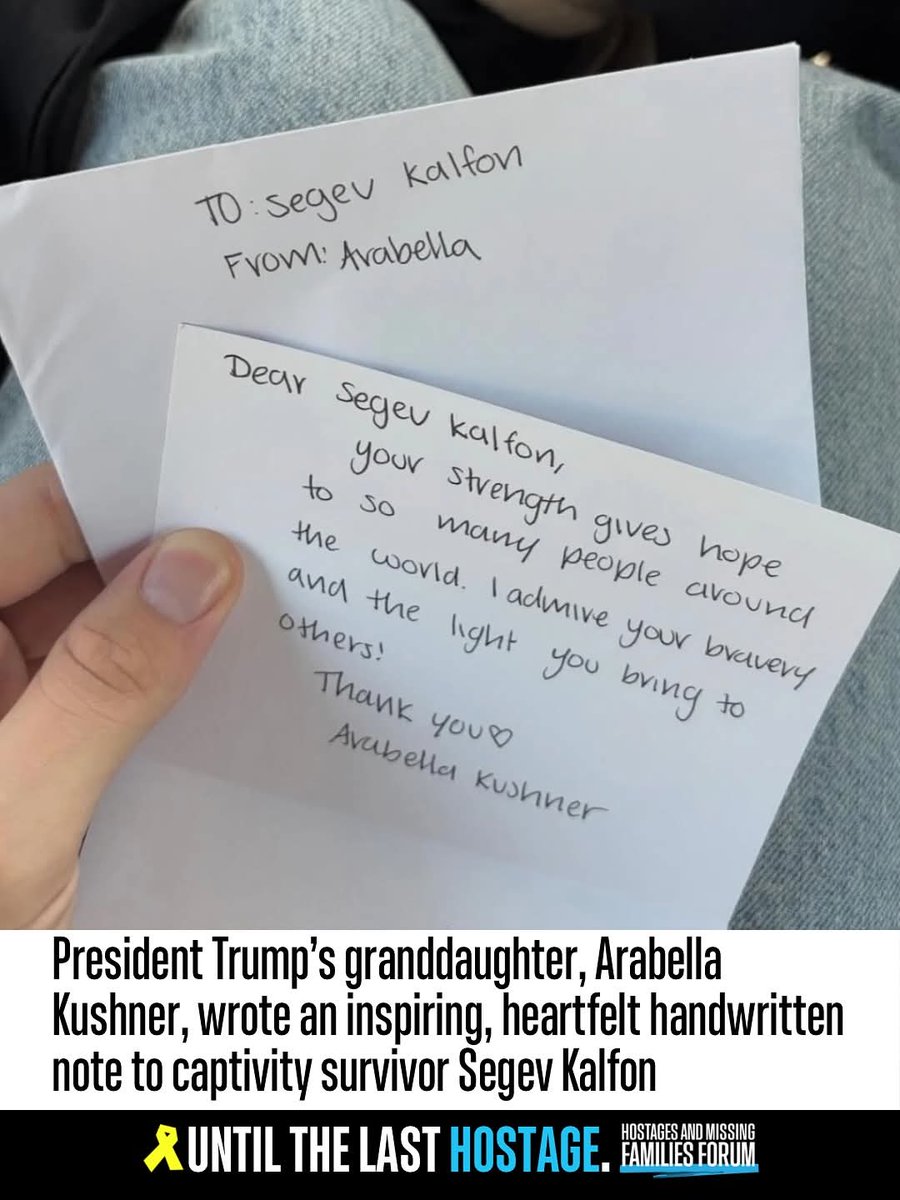 TO: Segev Kalfon
From: Arabella
Dear Segev Kalfon,
your strength gives hope
to so many people around
the world. I admire your bravery
and the light you bring to
others!
Thank you♡
Arabella Kushner
President Trump's granddaughter, Arabella
Kushner, wrote an inspiring, heartfelt handwritten
note to captivity survivor Segev Kalfon
UNTIL THE LAST HOSTAGE.
HOSTAGES AND MISSING
FAMILIES FORUM